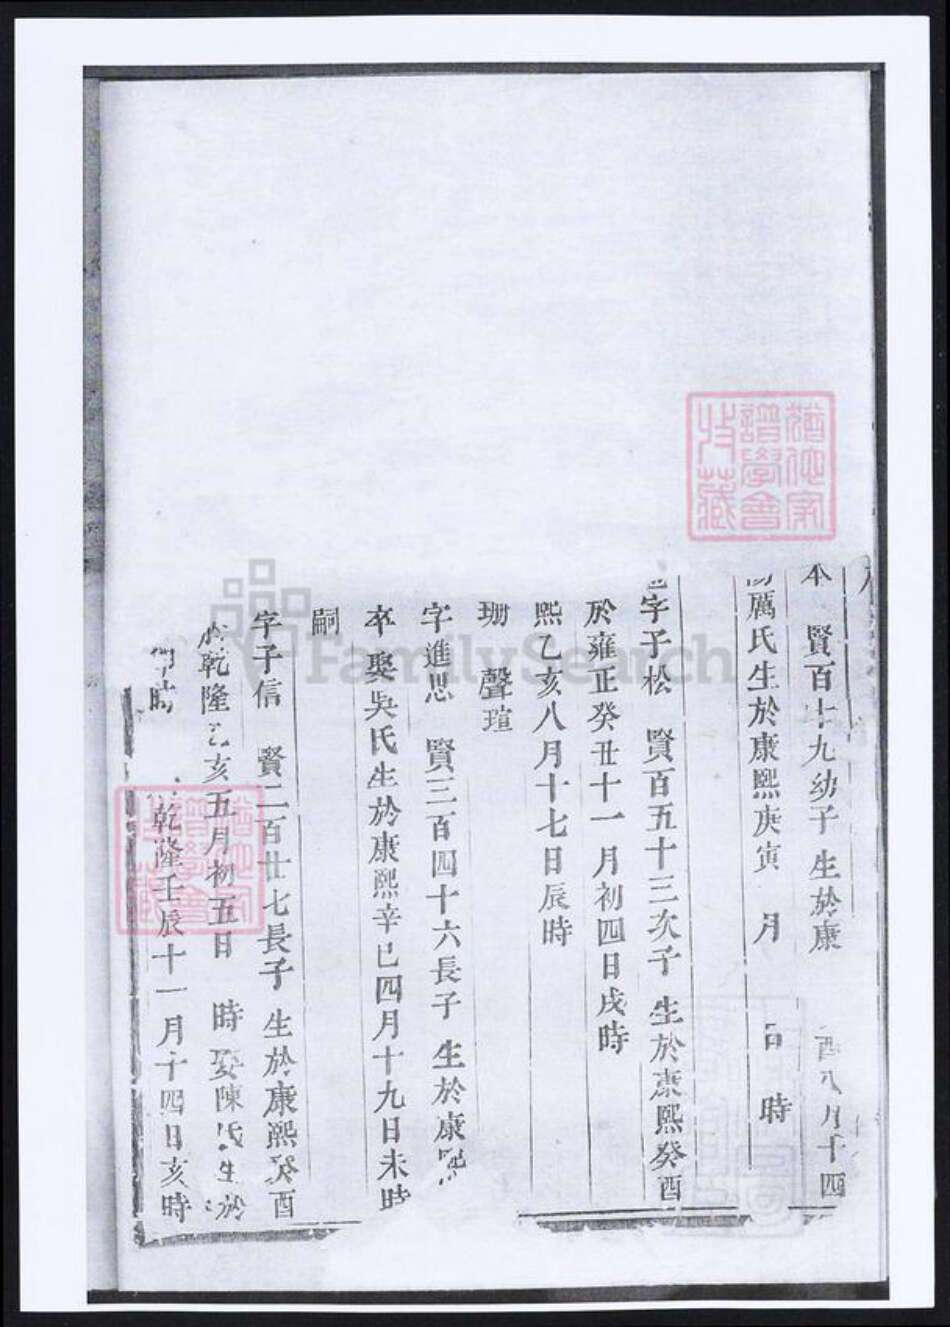 本 賢百十九幼子 生於康 酉八月十四
厲氏生於康熙庚寅 月 日 時
字子松 賢百五十三次子 生於康熙癸酉
於雍正癸丑十一月初四日戌時
熙乙亥八月十七日辰時
珊 聲瑄
字進思 賢三百四十六長子 生於康熙
卒 娶吳氏生於康熙辛巳四月十九日未時
嗣
字子信 賢二百廿七長子 生於康熙癸酉
乾隆乙亥五月初五日 時 娶陳氏生於
時 乾隆壬辰十一月十四日亥時
譜學會
收藏
FamilySearch